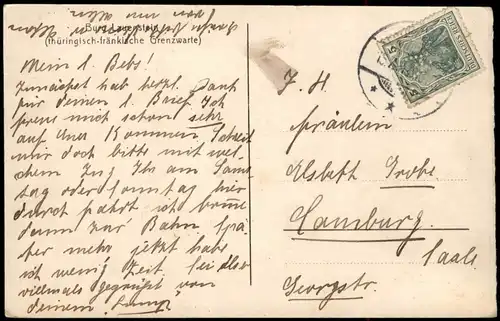 Burg Lauenstein
(thüringisch-fränkische Grenzwarte)
Mein l. Bebs!
Zunächst hab herzl. Dank
für deinen l. Brief. Ich
freue mich schon sehr
auf Euer Kommen. Schreib
mir doch bitte mit wel-
chem Zug Ihr am Sams-
tag oder Sonntag hier
durch fahrt ich komme
dann zur Bahn. Spä-
ter mehr jetzt habe
ich wenig Zeit. Sei also
vielmals gegrüßt von
deinem
Fräulein
Elsbeth Grobe
Camburg.
Saale
Georgstr.